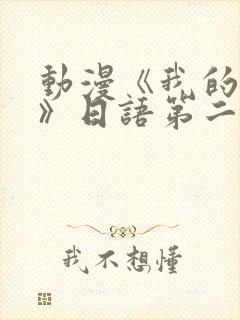 動漫《我的
》日語第二
我不想懂